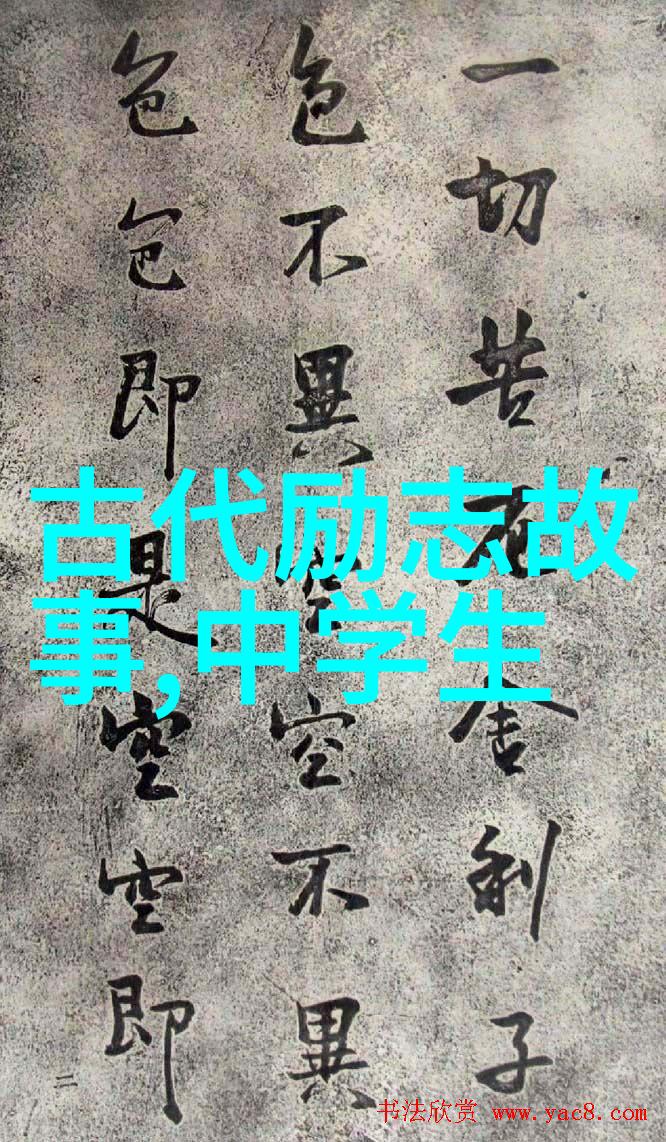 一切苦厄舍利子
色不異空空不異
色色即是空空即
二
古代励志故
事,中学生
书法欣赏 www.yac8.com